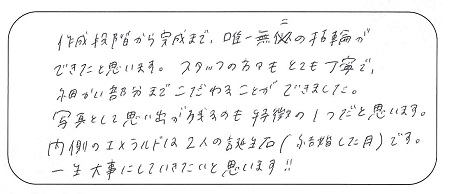 作成段階から完成まで、唯一無二の指輪が
できたと思います。スタッフの方々もとても丁寧で、
細かい部分までこだわることができました。
写真として思い出が残るのも特徴の1つだと思います。
内側のエメラルドは2人の誕生石（結婚した月）です。
一生大事にしていきたいと思います!!